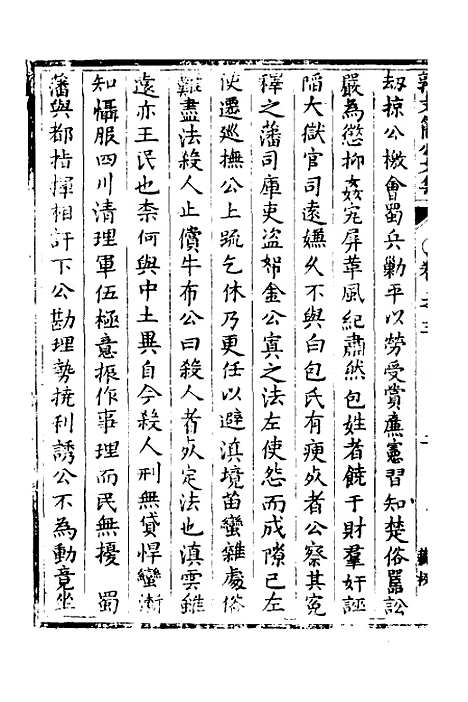 劫掠公檄會蜀兵勦平以勞受賞廉憲習知楚俗嚚訟
嚴為懲抑姦宄屏葦風紀肅然包姓者饒于財羣奸誣
陷大獄官司遠嫌久不與白包氏有瘐死者公察其冤
釋之藩司庫吏盜帑金公寘之法左使怨而成隙已左
使遷廵撫公上疏乞休乃更任以避滇境苗蠻雜處俗
難盡法殺人止償牛布公曰殺人者死定法也滇雲雖
遠亦王民也柰何與中土異自今殺人刑無貸悍蠻漸
知懾服四川清理軍伍極意振作事理而民無擾 蜀
藩與都指揮相訐下公勘理勢撓利誘公不為動竟坐